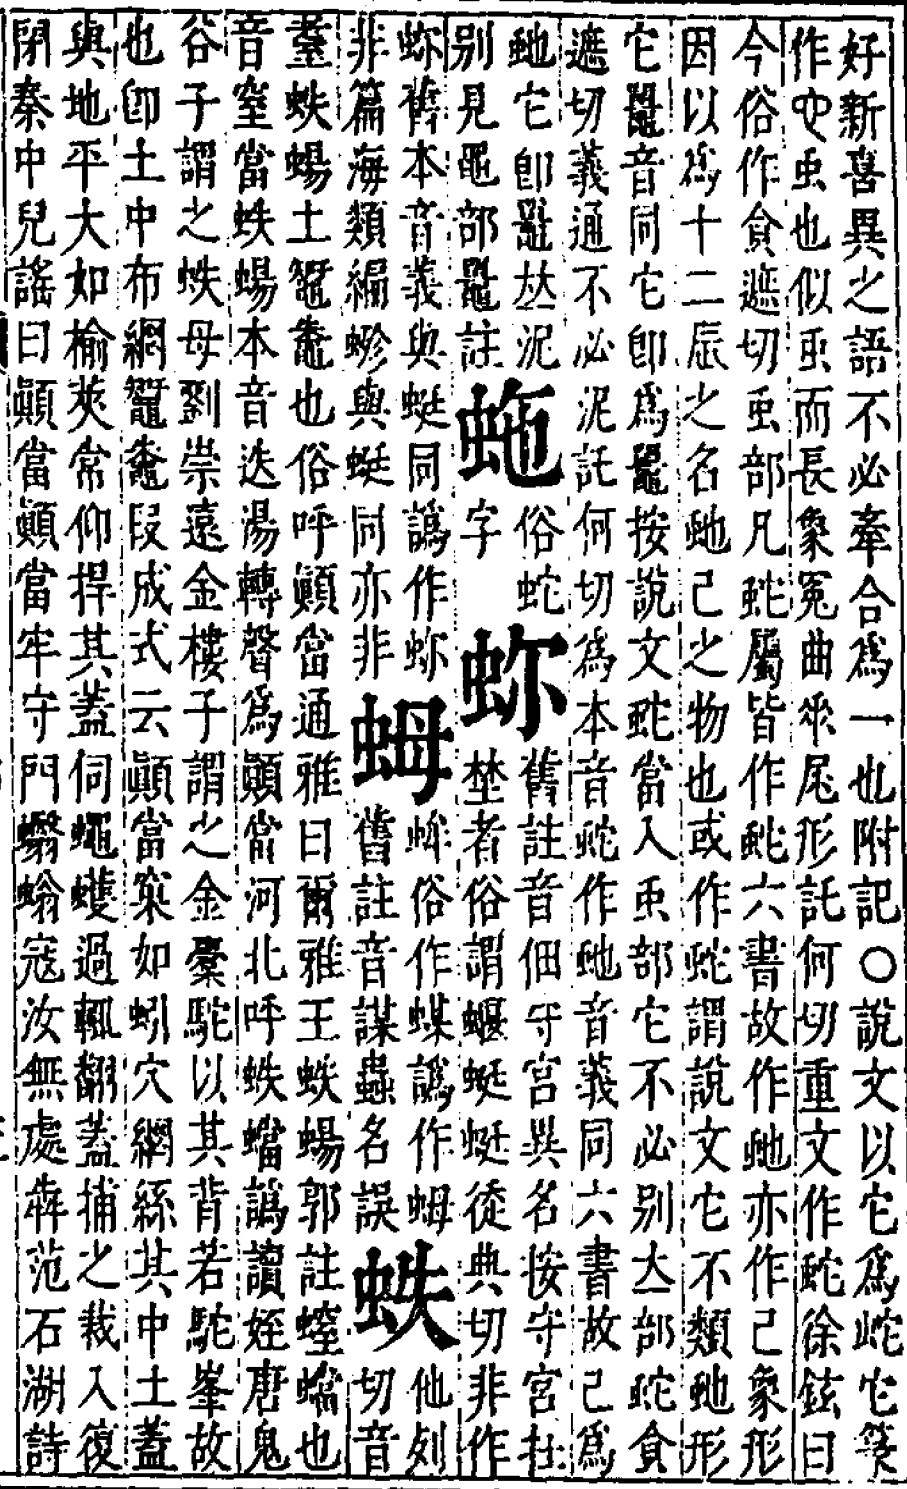 好新喜異之語不必牽合爲一也附記○說文以它爲蛇它篆
作虫也似虫而長象冤曲𠂹尾形託何切重文作蛇徐鉉曰
今俗作食遮切虫部凡虵屬皆作虵六書故作虵亦作己象形
因以爲十二辰之名虵己之物也或作蛇謂說文它不類虵形
它鼉音同它卽爲鼉按說文虵當入虫部它不必别立部蛇食
遮切義通不必泥託何切爲本音蛇作虵音義同六書故己爲
虵它卽鼉𠀤泥
别見黽部鼉註
䖳
俗蛇
字
舊註音佃守宮異名按守宮在
埜者俗謂蝘蜓蜓徒典切非作
舊本音義與蜓同譌作
非篇海類編與蜓同亦非
蛑俗作譌作
舊註音謀蟲名誤
蛈
他列
切音
耋蛈蜴土鼅鼄也俗呼顚當通雅曰爾雅王蛈蜴郭註螲蟷也
音窒當蛈蜴本音迭湯轉聲爲顚當河北呼蛈蟷譌讀姪唐鬼
谷子謂之蛈母劉崇遠金樓子謂之金槖駝以其背若駝峯故
也卽土中布網鼅鼄段成式云顚當窠如蚓穴網絲其中土蓋
與地平大如榆莢常仰捍其蓋伺蠅蠖過輒翻蓋捕之裁入復
閉秦中兒謠曰顚當顚當牢守門蠮螉寇汝無處奔范石湖詩